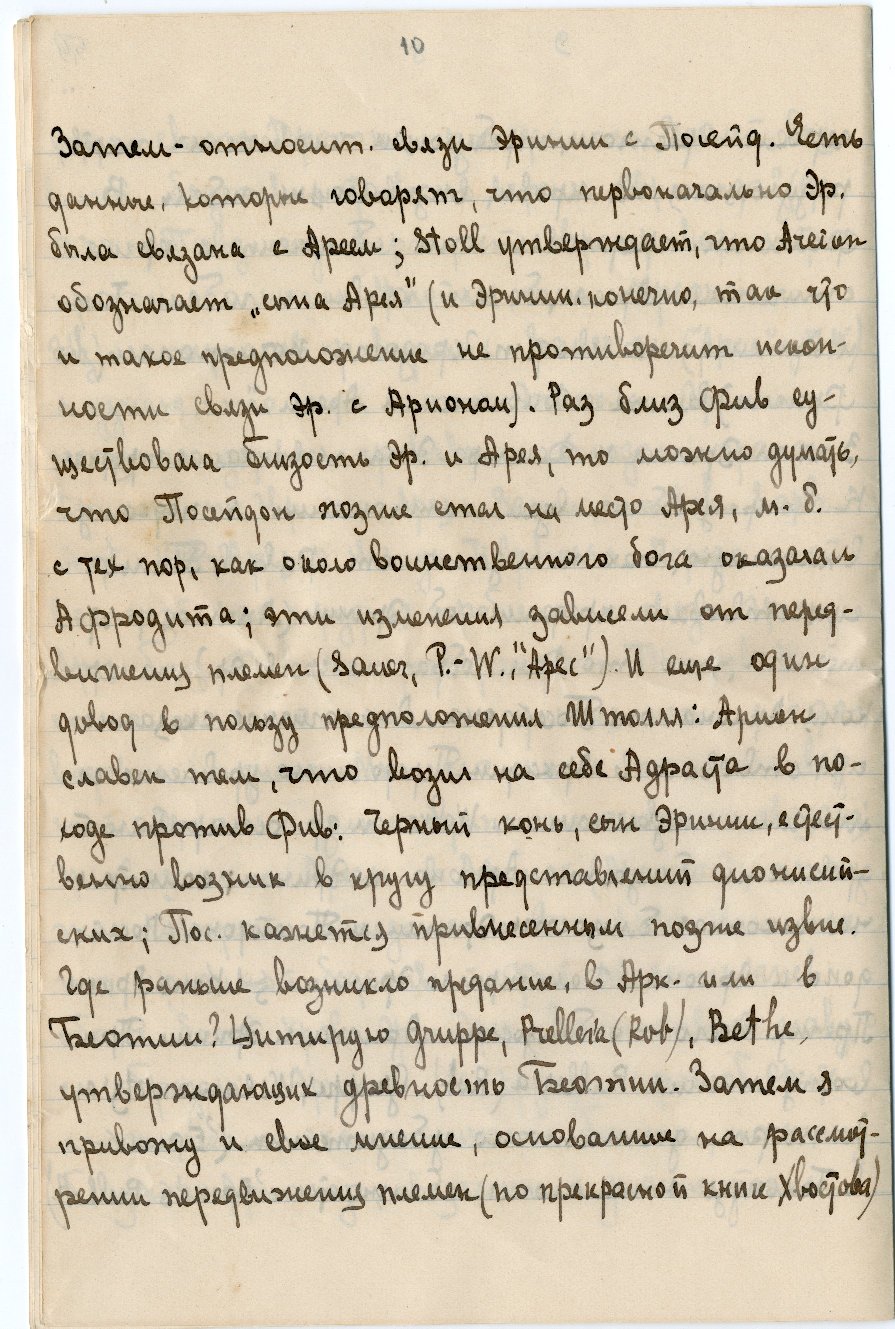 10
Затем - относит. связи Эринии с Посейд. Есть
данные, которые говорят, что первоначально Эр.
была связана с Ареем; Stoll утверждает, что Areion
обозначает „сына Арея" (и Эринии, конечно, так что
и такое предположение не противоречит искон-
ности связи Эр. с Арионом). Раз близ Фив су-
ществовала близость Эр. и Арея, то можно думать,
что Посейдон позже стал на место Арея, м. б.
с тех пор, как около воинственного бога оказалась
Афродита; эти изменения зависели от перед-
вижения племен (Sauer, P.-W., "Арес"). И еще один
довод в пользу предположения Штолля: Арион
славен тем, что возил на себе Адраста в по-
ходе против Фив. Черный конь, сын Эринии, естест-
венно возник в кругу представлений дионисий-
ских; Пос. кажется привнесенным позже извне.
Где раньше возникло предание, в Арк. или в
Беотии? Цитирую Gruppe, Preller'a (Rob), Bethe,
утверждающих древность Беотии. Затем я
привожу и свое мнение, основанное на рассмот-
рении передвижения племен (по прекрасной книге Хвостова)